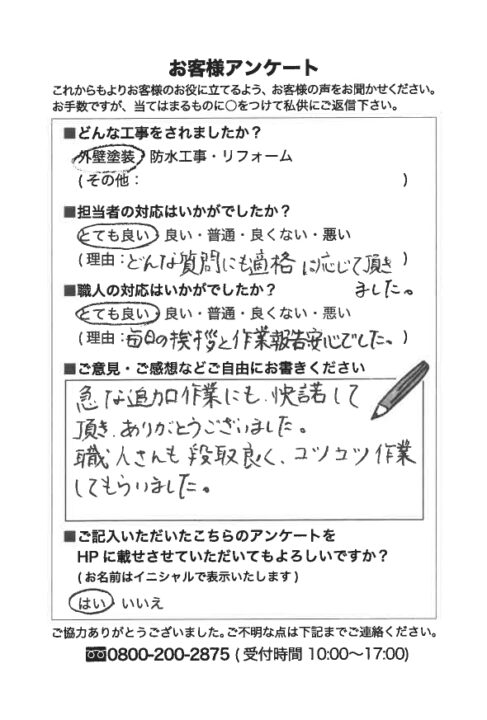 お客様アンケート
これからもよりお客様のお役に立てるよう、お客様の声をお聞かせください。
お手数ですが、当てはまるものに○をつけて私供にご返信下さい。
■どんな工事をされましたか？
外壁塗装・防水工事・リフォーム
(その他： )
■担当者の対応はいかがでしたか？
とても良い・良い・普通・良くない・悪い
(理由：どんな質問にも適格に応じて頂き )
ました。
■職人の対応はいかがでしたか？
とても良い・良い・普通・良くない・悪い
(理由：毎日の挨拶と作業報告安心でした。)
■ご意見・ご感想などご自由にお書きください
急な追加作業にも、快諾して
頂き、ありがとうございました。
職人さんも段取良く、コツコツ作業
してもらいました。
■ご記入いただいたこちらのアンケートを
HPに載せさせていただいてもよろしいですか？
(お名前はイニシャルで表示いたします)
はい・いいえ
ご協力ありがとうございました。ご不明な点は下記までご連絡ください。
0800-200-2875 (受付時間 10:00〜17:00)